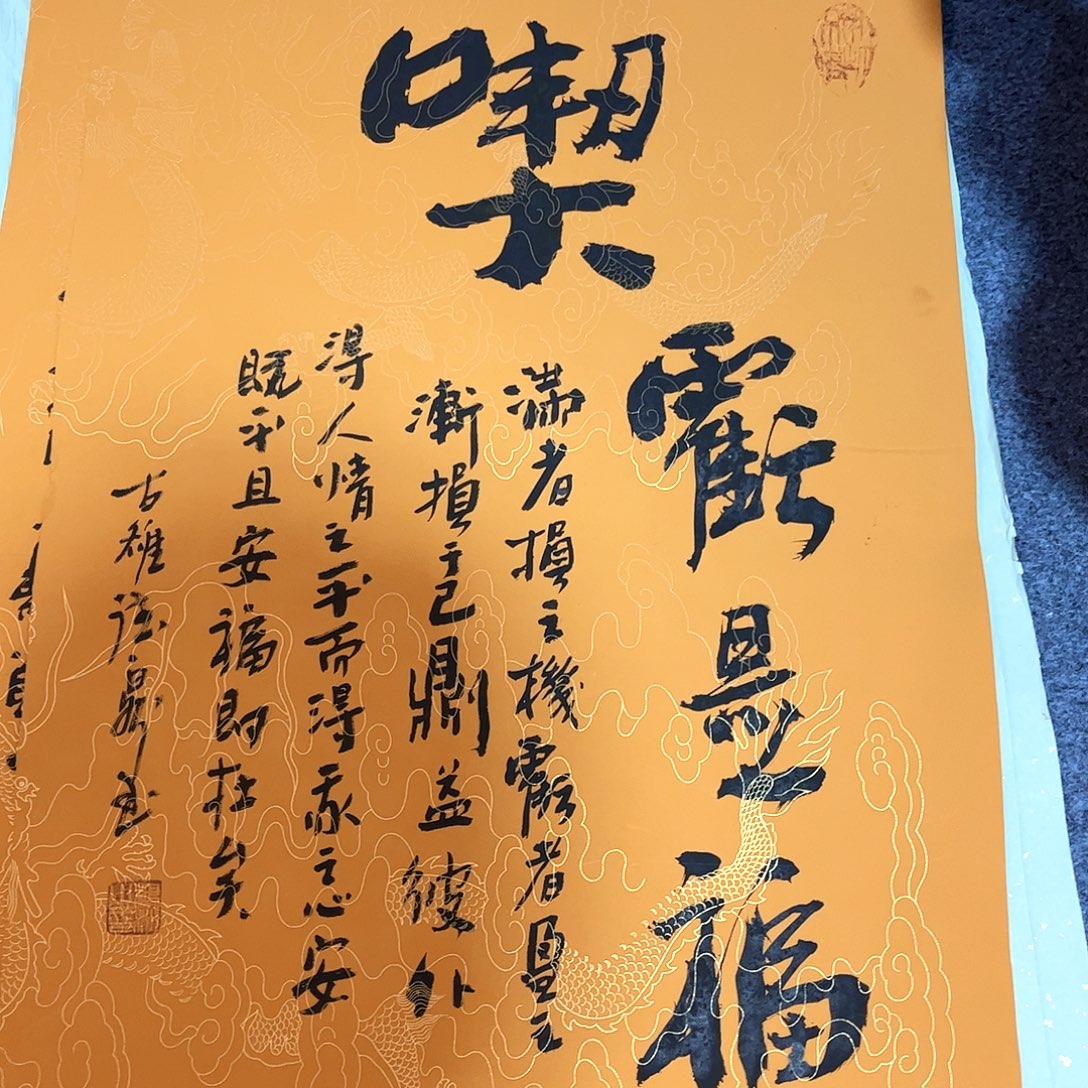 喫
虧是福
滿者損之機虧者盈之
漸損己則益彼外
得人情之平而得我之心安
既平且安福即在矣
古雄
书